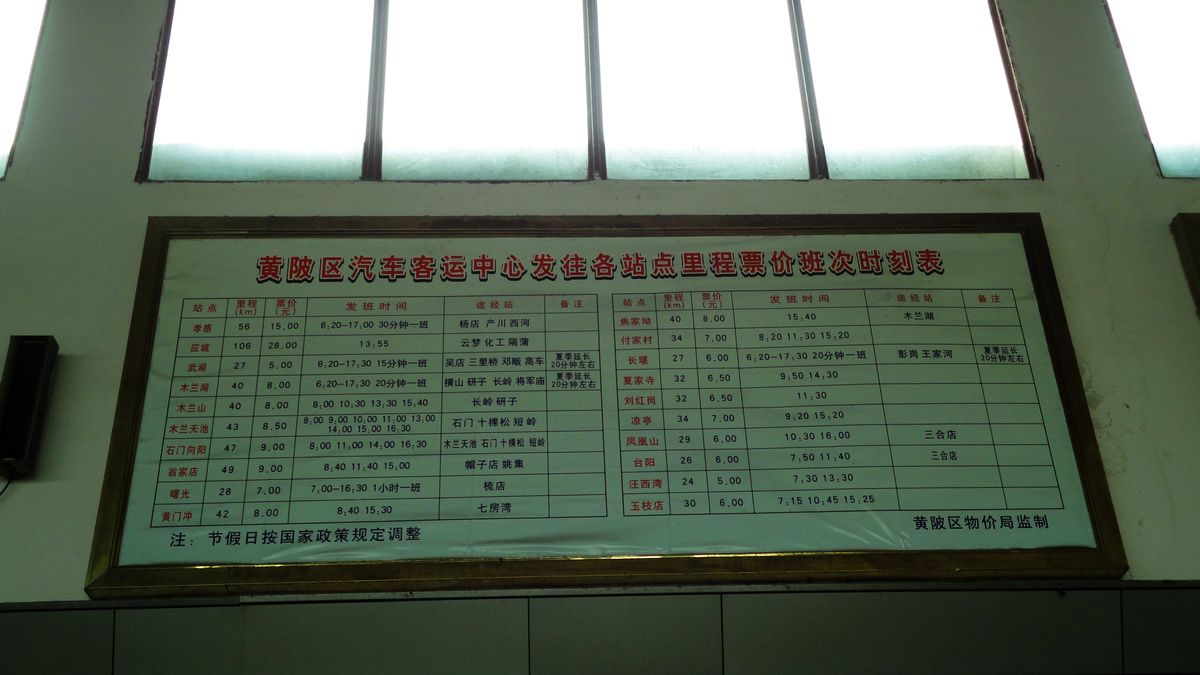 黄陂区汽车客运中心发往各站点里程票价班次时刻表
站点 里程(km) 票价(元) 发班时间 途经站 备注
孝感 56 15.00 6:20—17:00 30分钟一班 杨店 产川 西河
应城 106 28.00 13:55 云梦 化工 隔蒲
武湖 27 5.00 6:20—17:30 15分钟一班 吴店 三里桥 邓畈 高车 夏季延长20分钟左右
木兰湖 40 8.00 6:20—17:30 20分钟一班 横山 研子 长岭 将军庙 夏季延长20分钟左右
木兰山 40 8.00 8:00 10:30 13:30 15:40 长岭 研子
木兰天池 43 8.50 8:00 9:00 10:00 11:00 13:00 14:00 15:00 16:30 石门 十棵松 短岭
石门向阳 47 9.00 8:00 11:00 14:00 16:30 木兰天池 石门 十棵松 短岭
翁家店 49 9.00 8:40 11:40 15:00 帽子店 姚集
曙光 28 7.00 7:00—16:30 1小时一班 梳店
黄门冲 42 8.00 8:40 15:30 七房湾
站点 里程(km) 票价(元) 发班时间 途经站 备注
焦家坳 40 8.00 15:40 木兰湖
付家村 34 7.00 8:20 11:30 15:20
长堰 27 6.00 6:20—17:30 20分钟一班 彭岗 王家河 夏季延长20分钟左右
夏家寺 32 6.50 9:50 14:30
刘红岗 32 6.50 11:30
凉亭 34 7.00 9:20 15:20
凤凰山 29 6.00 10:30 16:00 三合店
台阳 26 6.00 7:50 11:40 三合店
汪西湾 24 5.00 7:30 13:30
玉枝店 30 6.00 7:15 10:45 15:25
注：节假日按国家政策规定调整
黄陂区物价局监制